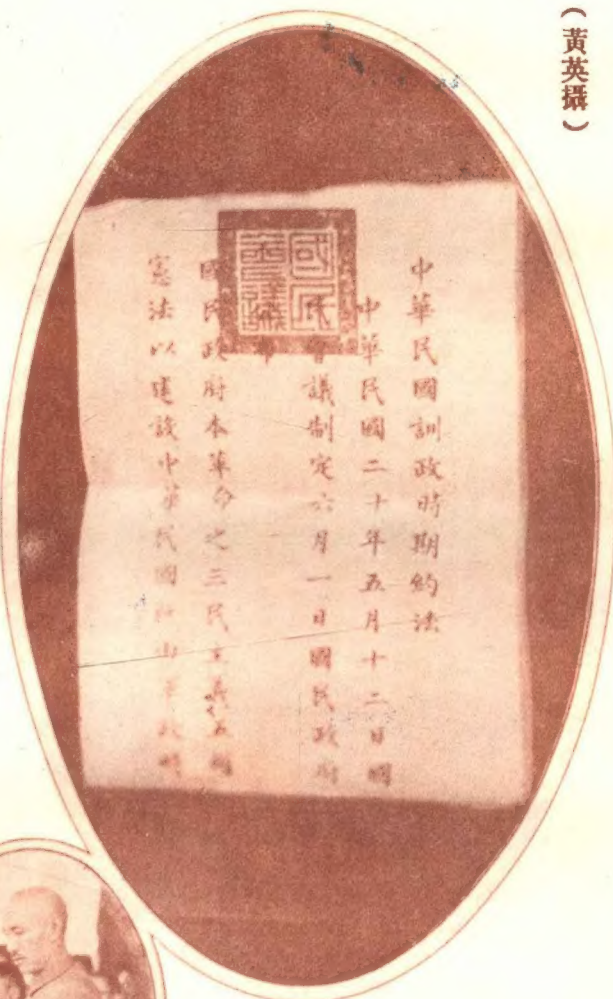 （黃英攝）
中華民國訓政時期約法
中華民國二十年五月十二日國
民會議制定六月一日國民政府
布
國民政府本革命之三民主義五權
憲法以建設中華民國既由軍政時
國民